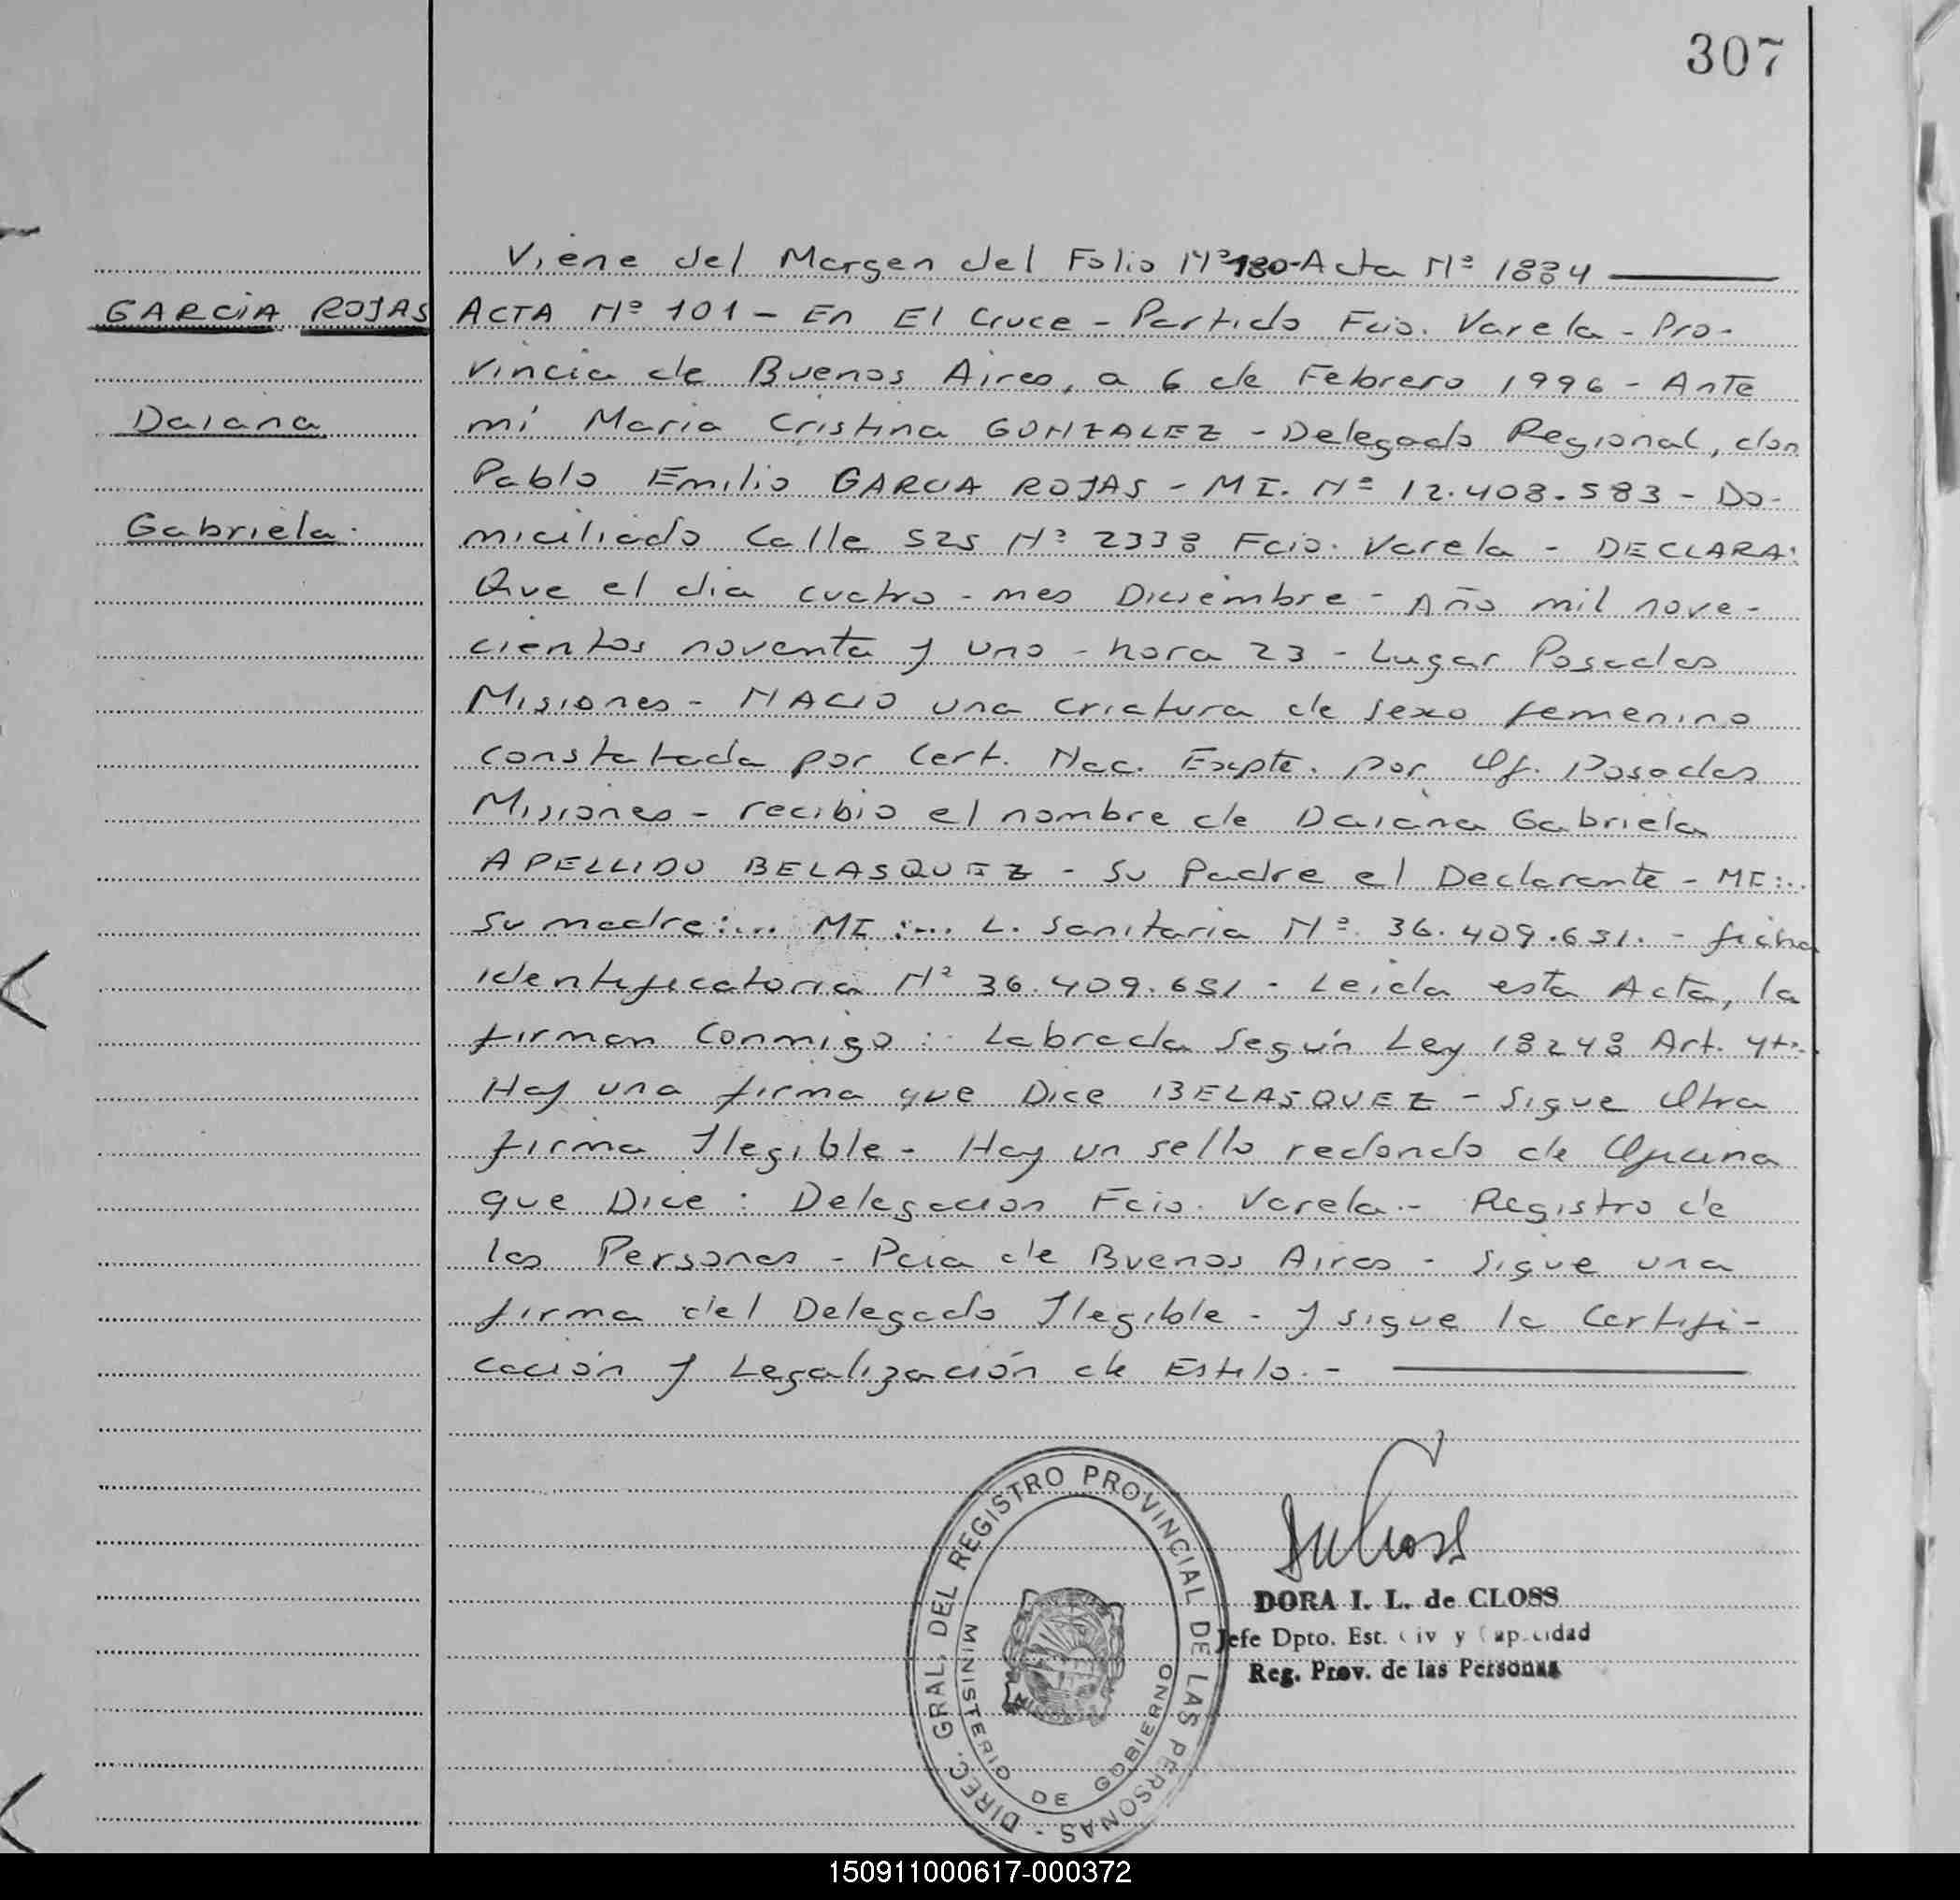 307
Viene del Margen del Folio Nº 180-Acta Nº 1884
GARCIA ROJAS
ACTA Nº 101 - En El Cruce - Partido Fcio. Varela - Pro-
vincia de Buenos Aires, a 6 de Febrero 1996 - Ante
Daiana
mi Maria Cristina GONZALEZ - Delegado Regional, don
Pablo Emilio GARCIA ROJAS - MI. Nº 12.408.583 - Do-
Gabriela.
miciliado Calle 525 Nº 2338 Fcio. Varela - DECLARA:
Que el dia cuatro - mes Diciembre - Año mil nove-
cientos noventa y uno - hora 23 - Lugar Posadas
Misiones - NACIO una criatura de sexo femenino
constatada por Cert. Nac. Expte. por Of. Posadas
Misiones - recibio el nombre de Daiana Gabriela
APELLIDO BELASQUEZ - Su Padre el Declarante - MI:..
su madre:... MI:... L. Sanitaria Nº 36.409.631. - ficha
identificatoria Nº 36.409.631 - Leida esta Acta, la
firman Conmigo: Labrada Según Ley 18248 Art. 4to.
Hay una firma que Dice BELASQUEZ - Sigue Otra
firma Ilegible - Hay un sello redondo de Oficina
que Dice: Delegacion Fcio. Varela.- Registro de
las Personas - Pcia de Buenos Aires - Sigue una
firma del Delegado Ilegible - y sigue la Certifi-
cación y Legalización de Estilo.-
DIREC. GRAL. DEL REGISTRO PROVINCIAL DE LAS PERSONAS -
MINISTERIO DE GOBIERNO
DORA I. L. de CLOSS
Jefe Dpto. Est. Civ y Capacidad
Reg. Prov. de las Personas
150911000617-000372